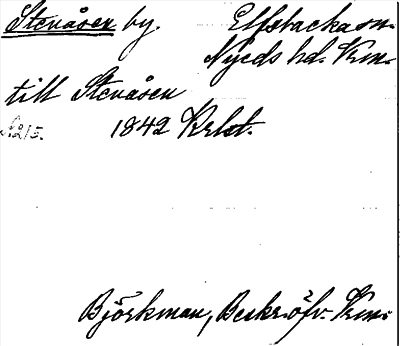 Stenåsen by. Elfsbacka sn.
Nyeds hd. Krm.
till Stenåsen
1842 Krlst.
Björkman, Beskr. öfv. Krm.